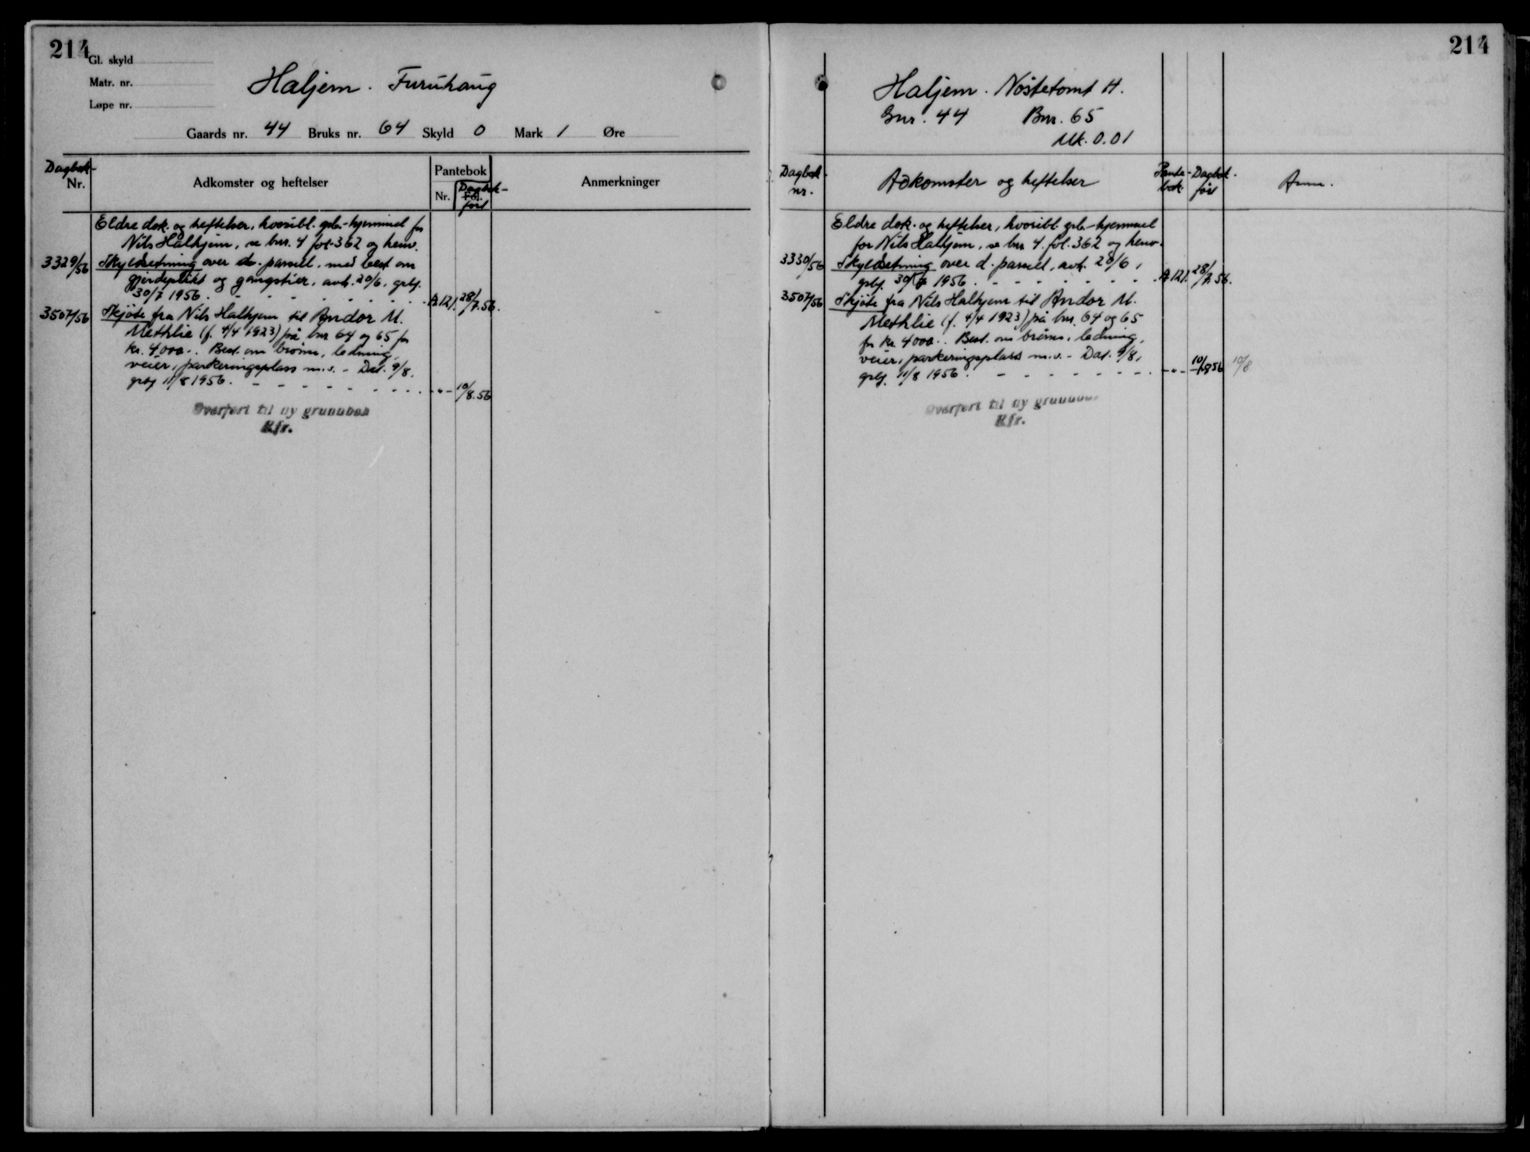 214
Gl. skyld
Matr. nr.
Løpe nr.
Haljem. Furuhaug
Gaards nr. 44 Bruks nr. 64 Skyld 0 Mark 1 Øre
Dagbok-
Nr.
Adkomster og heftelser
Pantebok
Nr.
Fol.
Dagbok-
ført
Anmerkninger
Eldre dok. og heftelser, hvoribl. grb.-hjemmel for
Nils Halhjem, se bnr. 4 fol. 362 og henv.
3329/56 Skyldsetning over d. parsell, med best om
gjerdeplikt og gangstier, avh. 20/6, grlj.
30/7 1956. - - - - - - - - A 121. 28/7.56.
3507/56 Skjøte fra Nils Halhjem til Andor M.
Methlie (f. 4/4 1923) på bnr 64 og 65 for
kr. 4000.-. Best. om brønn, ledning,
veier, parkeringsplass m.v. - Dat. 9/8.
grlj 11/8 1956. - - - - - - - - -"- 10/8.56
Overført til ny grunnbok
Kfr.
214
Haljem. Nøstetomt H.
Gnr. 44 Bnr. 65
Mk. 0.01
Dagbok-
nr.
Adkomster og heftelser
Pante-
bok
Dagbok-
ført
Anm.
Eldre dok. og heftelser, hvoribl. grb.-hjemmel
for Nils Halhjem, se bnr 4. fol. 362 og henv.
3330/56 Skyldsetning over d. parsell, avh. 20/6,
grlj. 30/7 1956. - - - - - - - A 121. 28/7.56.
3507/56 Skjøte fra Nils Halhjem til Andor M.
Methlie (f. 4/4 1923) på bnr. 64 og 65
for kr 4000.-. Best. om brønn, ledning,
veier, parkeringsplass m.v. - Dat. 9/8,
grlj. 11/8 1956. - - - - - - - -"- 10/8.56 10/8
Overført til ny grunnbok
Kfr.